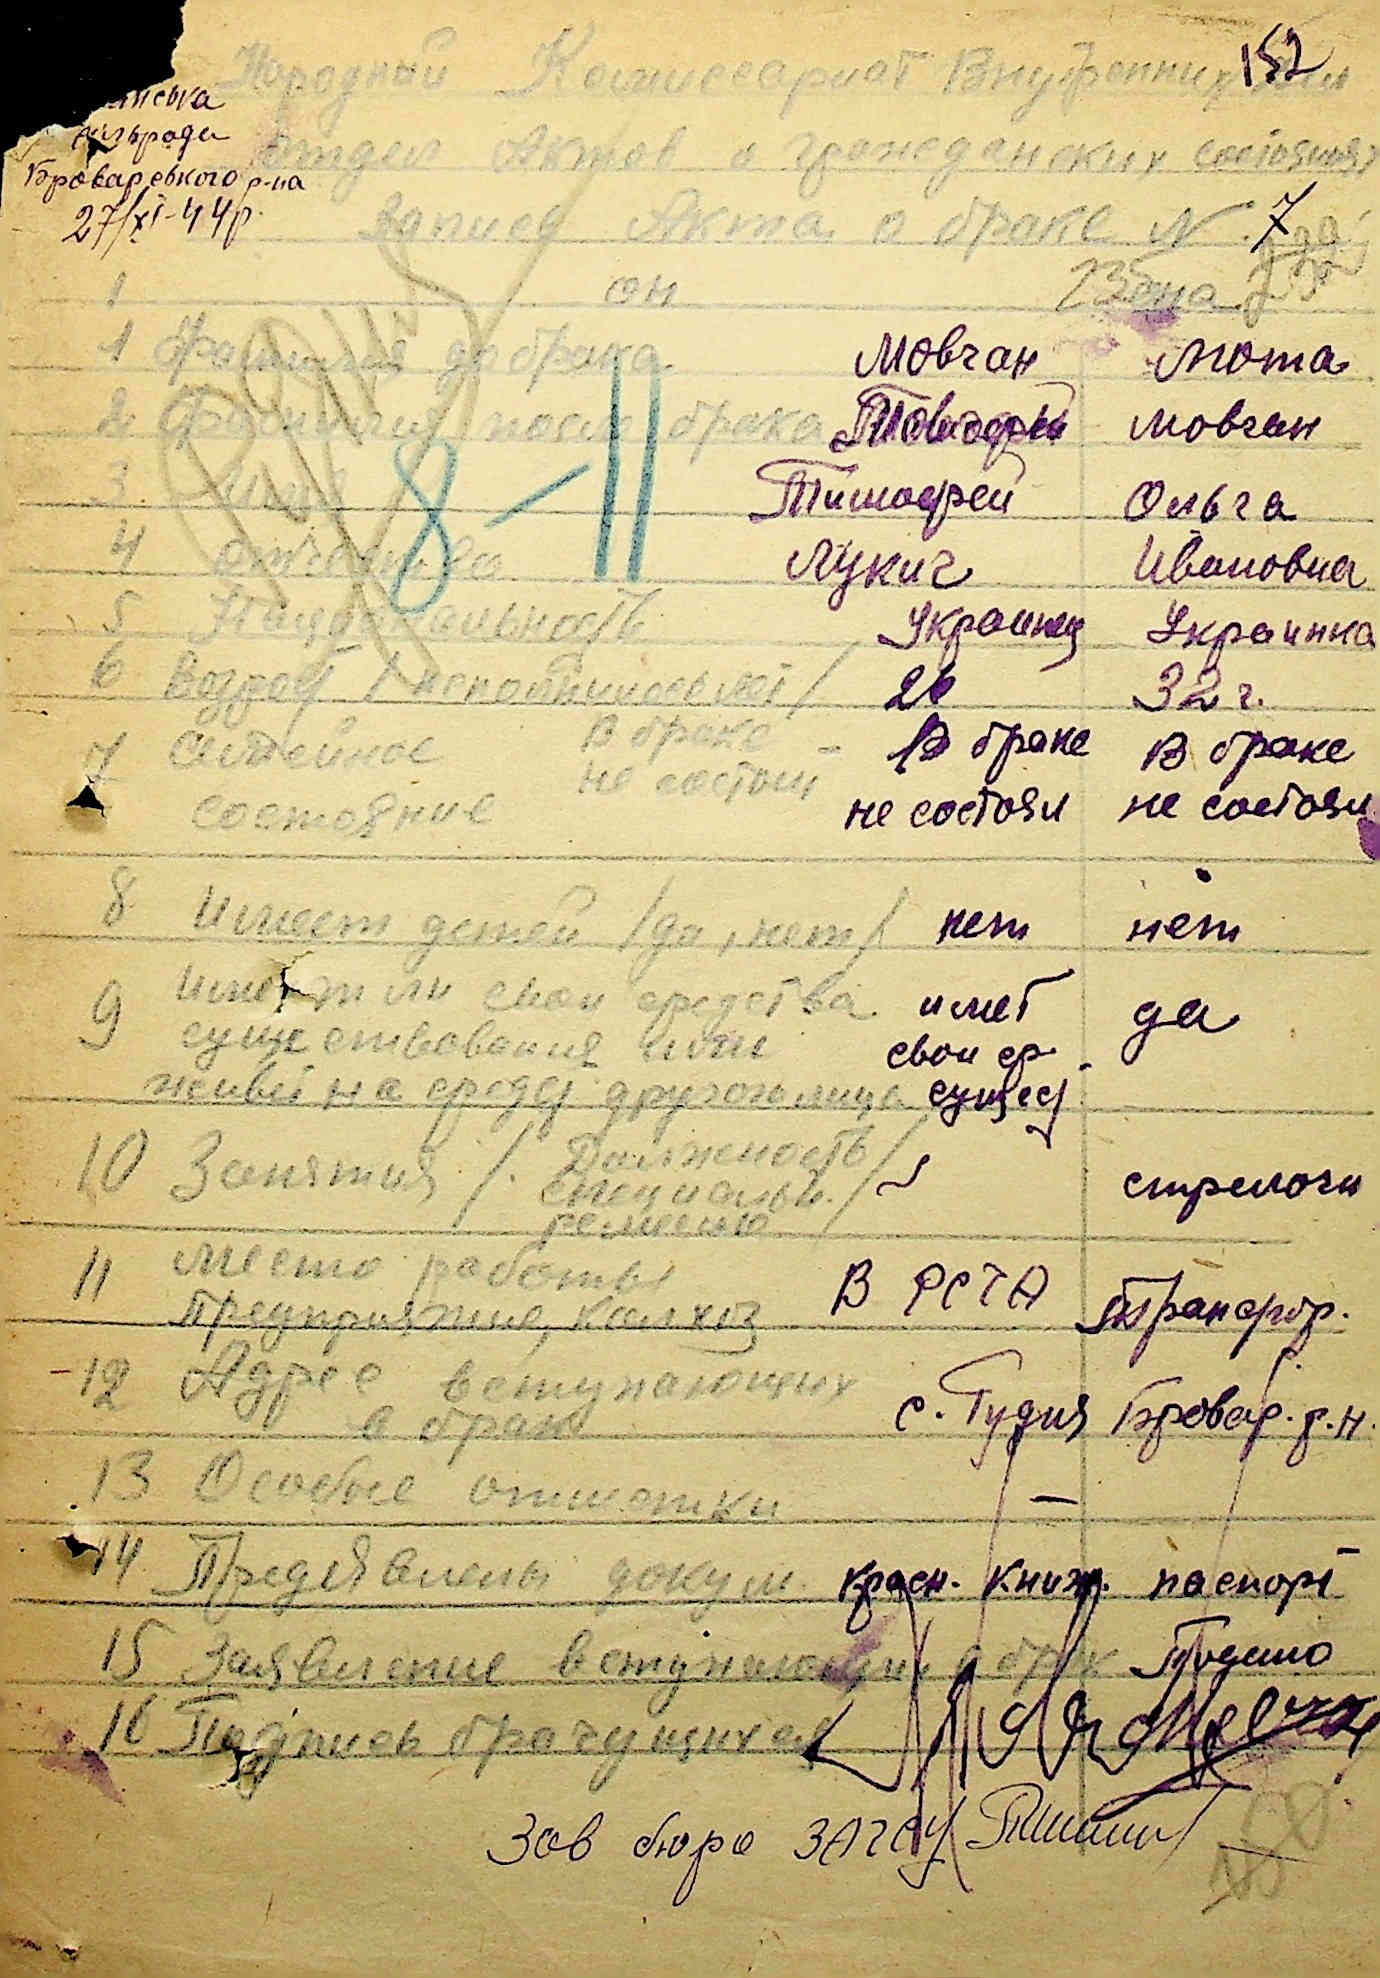 152
Народный Комиссариат Внутренних Дел
сільради
Броварського р-на
27/XI-44 р.
Отдел Актов о гражданских состояниях
Запись Акта о браке N 7
1 он она
1 Фамилия до брака Мовчан Мота
2 Фамилия после брака мовчан
3 Имя Тимофей Ольга
4 отчество Лукич Ивановна
5 Национальность Украинец Украинка
6 Возраст / исполнилось лет / 26 32 г.
8 – 11
7 Семейное В браке - В браке В браке
состояние не состоит не состоял не состоял
8 Имеет детей /да, нет/ нет нет
9 Имеет ли свои средства имеет да
существования или свои ср.
живет на средст другого лица сущест
10 Занятия / Должность / стрелочн
специальн. /
ремесло
11 Место работы В РСЧА
предприятие, колхоз Трансфор.
12 Адрес вступающих
в брак с. Гудия Бровар. р.н.
13 Особые отметки —
14 Предъявлены докум. красн. книж. паспорт
15 Заявление вступающих в брак Подано
16 Подпись брачущихся
Зав бюро ЗАГСУ